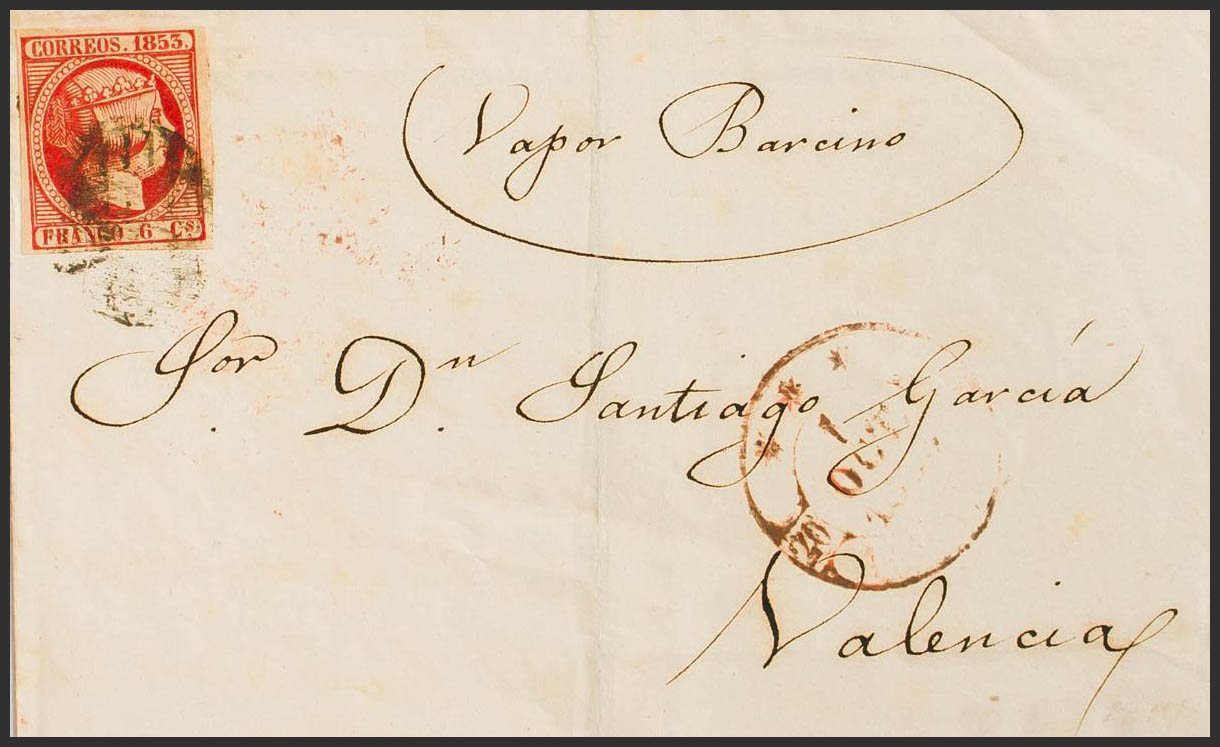 CORREOS. 1853.
FRANCO 6 Cs
Vapor Barcino
Sor. Dn. Santiago García
1
OCT
20
Valencia